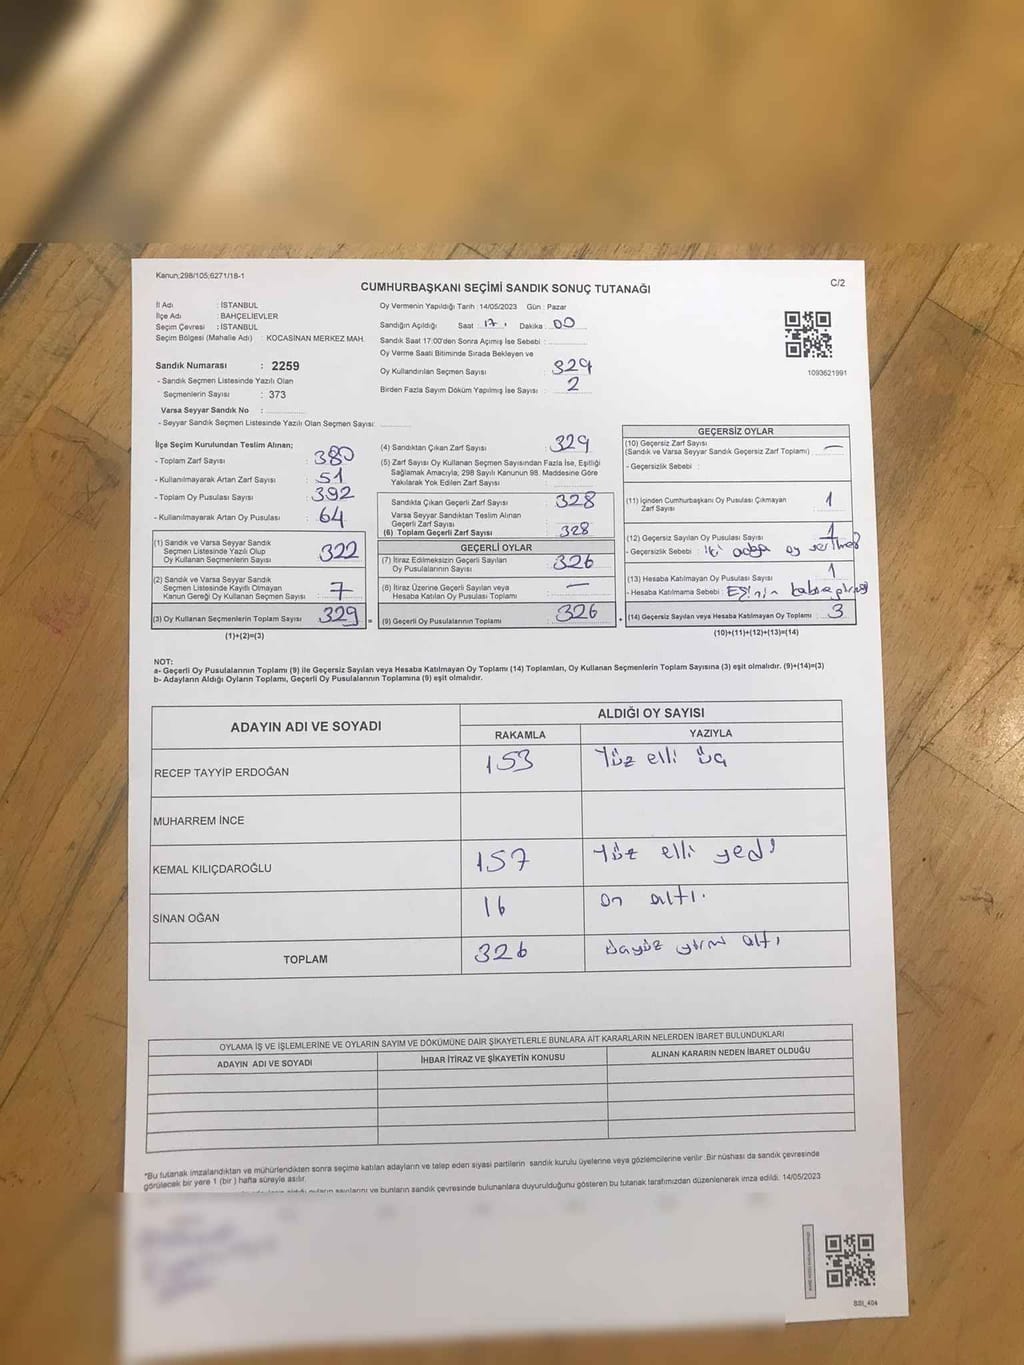 Kanun;298/105;6271/18-1
CUMHURBAŞKANI SEÇİMİ SANDIK SONUÇ TUTANAĞI
C/2
İl Adı : İSTANBUL
İlçe Adı : BAHÇELİEVLER
Seçim Çevresi : İSTANBUL
Seçim Bölgesi (Mahalle Adı) : KOCASİNAN MERKEZ MAH.
Sandık Numarası : 2259
- Sandık Seçmen Listesinde Yazılı Olan
Seçmenlerin Sayısı : 373
Varsa Seyyar Sandık No :
- Seyyar Sandık Seçmen Listesinde Yazılı Olan Seçmen Sayısı:
Oy Vermenin Yapıldığı Tarih : 14/05/2023 Gün : Pazar
Sandığın Açıldığı Saat : 17 . Dakika : 00
Sandık Saat 17:00'den Sonra Açımış İse Sebebi :
Oy Verme Saati Bitiminde Sırada Bekleyen ve
Oy Kullandırılan Seçmen Sayısı : 329
Birden Fazla Sayım Döküm Yapılmış İse Sayısı : 2
1093621991
İlçe Seçim Kurulundan Teslim Alınan;
- Toplam Zarf Sayısı : 380
- Kullanılmayarak Artan Zarf Sayısı : 51
- Toplam Oy Pusulası Sayısı : 392
- Kullanılmayarak Artan Oy Pusulası : 64
(1) Sandık ve Varsa Seyyar Sandık
Seçmen Listesinde Yazılı Olup
Oy Kullanan Seçmenlerin Sayısı : 322
(2) Sandık ve Varsa Seyyar Sandık
Seçmen Listesinde Kayıtlı Olmayan
Kanun Gereği Oy Kullanan Seçmen Sayısı : 7
(3) Oy Kullanan Seçmenlerin Toplam Sayısı : 329 =
(1)+(2)=(3)
(4) Sandıktan Çıkan Zarf Sayısı : 329
(5) Zarf Sayısı Oy Kullanan Seçmen Sayısından Fazla İse, Eşitliği
Sağlamak Amacıyla; 298 Sayılı Kanunun 98. Maddesine Göre
Yakılarak Yok Edilen Zarf Sayısı :
Sandıkta Çıkan Geçerli Zarf Sayısı : 328
Varsa Seyyar Sandıktan Teslim Alınan
Geçerli Zarf Sayısı :
(6) Toplam Geçerli Zarf Sayısı : 328
GEÇERLİ OYLAR
(7) İtiraz Edilmeksizin Geçerli Sayılan
Oy Pusulalarının Sayısı : 326
(8) İtiraz Üzerine Geçerli Sayılan veya
Hesaba Katılan Oy Pusulası Toplamı : —
(9) Geçerli Oy Pusulalarının Toplamı : 326 +
GEÇERSİZ OYLAR
(10) Geçersiz Zarf Sayısı
(Sandık ve Varsa Seyyar Sandık Geçersiz Zarf Toplamı) : —
- Geçersizlik Sebebi :
(11) İçinden Cumhurbaşkanı Oy Pusulası Çıkmayan
Zarf Sayısı : 1
(12) Geçersiz Sayılan Oy Pusulası Sayısı : 1
- Geçersizlik Sebebi : iki adaya oy verilmiş
(13) Hesaba Katılmayan Oy Pusulası Sayısı : 1
- Hesaba Katılmama Sebebi : Eşinin
(14) Geçersiz Sayılan veya Hesaba Katılmayan Oy Toplamı : 3
(10)+(11)+(12)+(13)=(14)
NOT:
a- Geçerli Oy Pusulalarının Toplamı (9) ile Geçersiz Sayılan veya Hesaba Katılmayan Oy Toplamı (14) Toplamları, Oy Kullanan Seçmenlerin Toplam Sayısına (3) eşit olmalıdır. (9)+(14)=(3)
b- Adayların Aldığı Oyların Toplamı, Geçerli Oy Pusulalarının Toplamına (9) eşit olmalıdır.
ADAYIN ADI VE SOYADI ALDIĞI OY SAYISI
RAKAMLA YAZIYLA
RECEP TAYYİP ERDOĞAN 153 Yüz elli üç
MUHARREM İNCE
KEMAL KILIÇDAROĞLU 157 Yüz elli yedi
SİNAN OĞAN 16 on altı.
TOPLAM 326 üçyüz yirmi altı
OYLAMA İŞ VE İŞLEMLERİNE VE OYLARIN SAYIM VE DÖKÜMÜNE DAİR ŞİKAYETLERLE BUNLARA AİT KARARLARIN NELERDEN İBARET BULUNDUKLARI
ADAYIN ADI VE SOYADI İHBAR İTİRAZ VE ŞİKAYETİN KONUSU ALINAN KARARIN NEDEN İBARET OLDUĞU
*Bu tutanak imzalandıktan ve mühürlendikten sonra seçime katılan adayların ve talep eden siyasi partilerin sandık kurulu üyelerine veya gözlemcilerine verilir .Bir nüshası da sandık çevresinde
görülecek bir yere 1 (bir ) hafta süreyle asılır.
ve bunların sandık çevresinde bulunanlara duyurulduğunu gösteren bu tutanak tarafımızdan düzenlenerek imza edildi. 14/05/2023
BSI_404